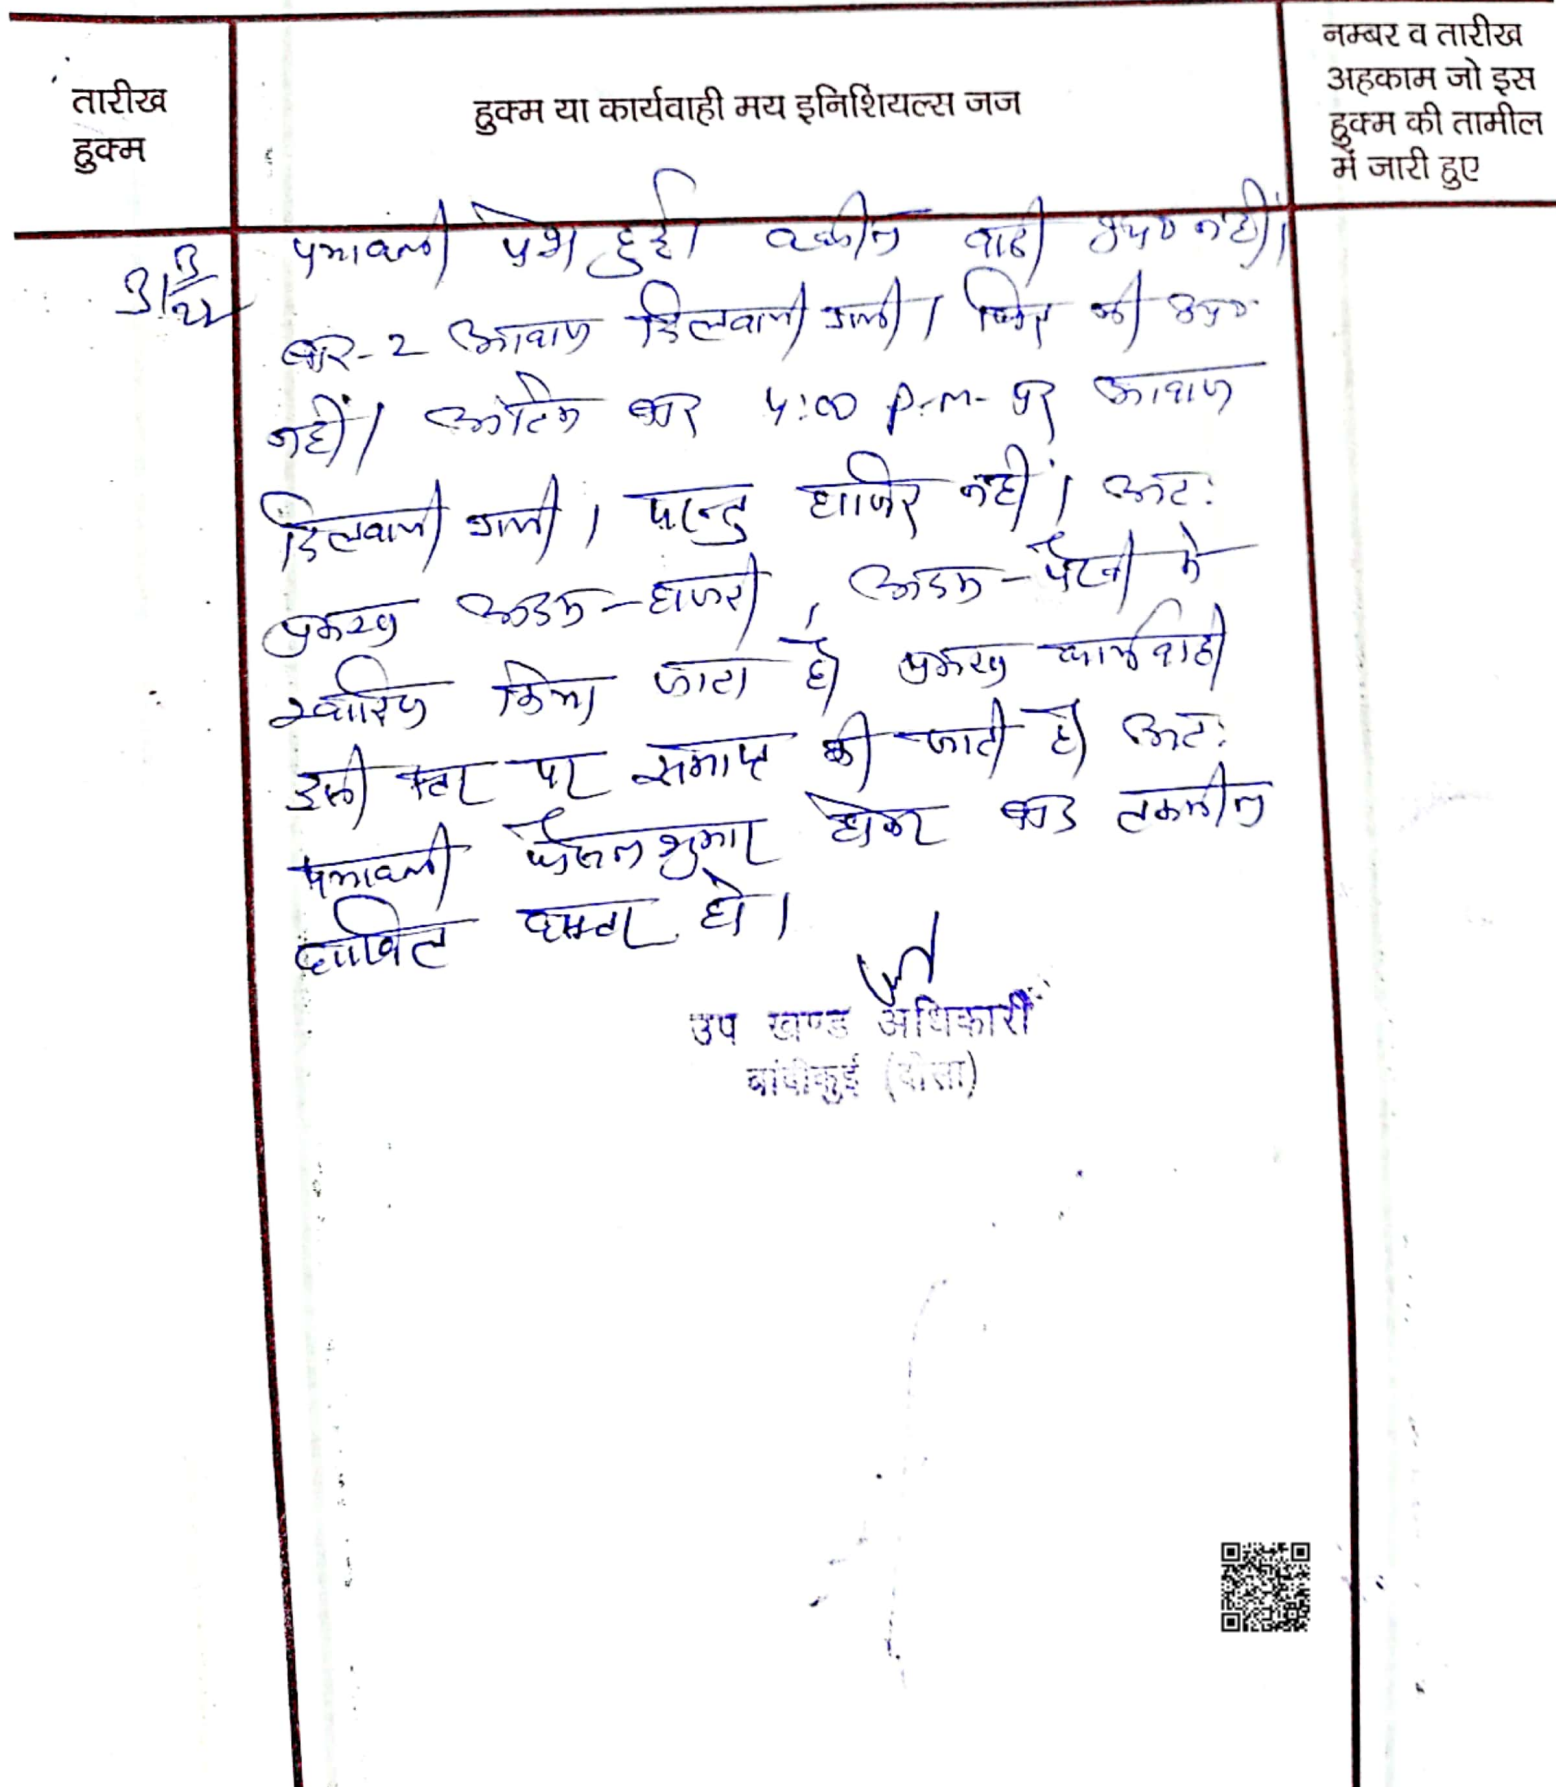 तारीख
हुक्म
हुक्म या कार्यवाही मय इनिशियल्स जज
नम्बर व तारीख
अहकाम जो इस
हुक्म की तामील
में जारी हुए
पत्रावली पेश हुई। वकील वादी उप० नहीं।
बार-2 आवाज दिलवायी गयी। फिर भी उप०
नहीं। अंतिम बार 4:00 P.m. पर आवाज
दिलवायी गयी। परन्तु हाजिर नहीं। अतः
प्रकरण अदम-हाजरी, अदम-पैरवी मे
खारिज किया जाता है। प्रकरण कार्यवाही
इसी स्तर पर समाप्त की जाती है। अतः
पत्रावली फैसल शुमार होकर बाद तकमील
दाखिल दफ्तर हो।
उप खण्ड अधिकारी
बांदीकुई (दौसा)